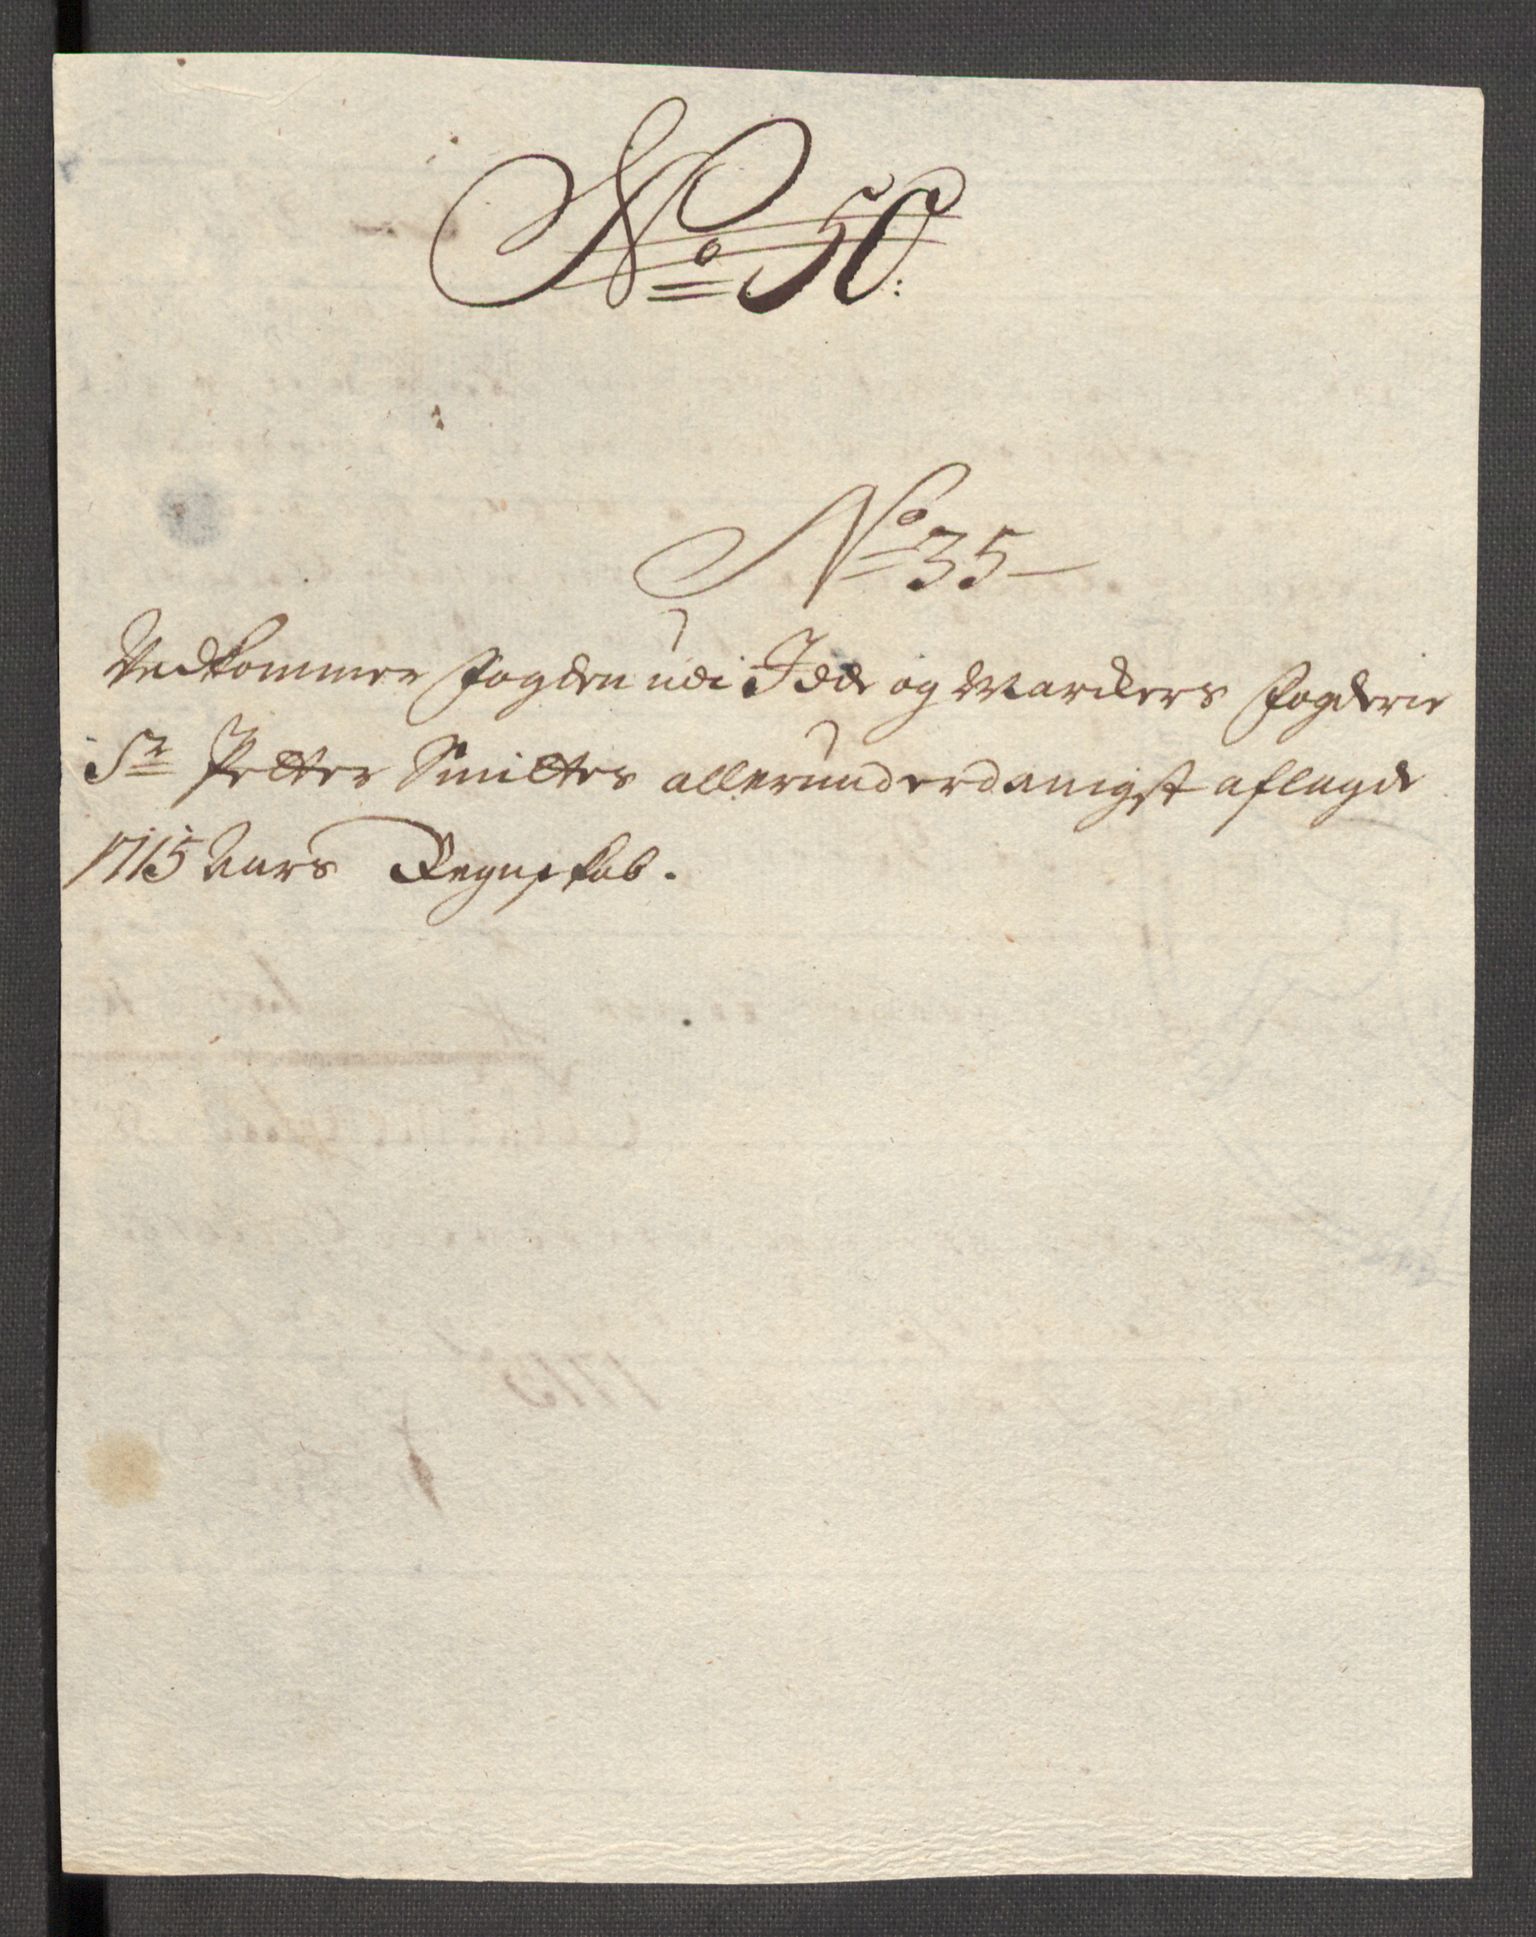 No 50:
No 35
Vedkommer fogden udi Idde og Marckers fogderie
Sr Petter Smittes allerunderdanigst aflagde
1715 Aars Regnskab.